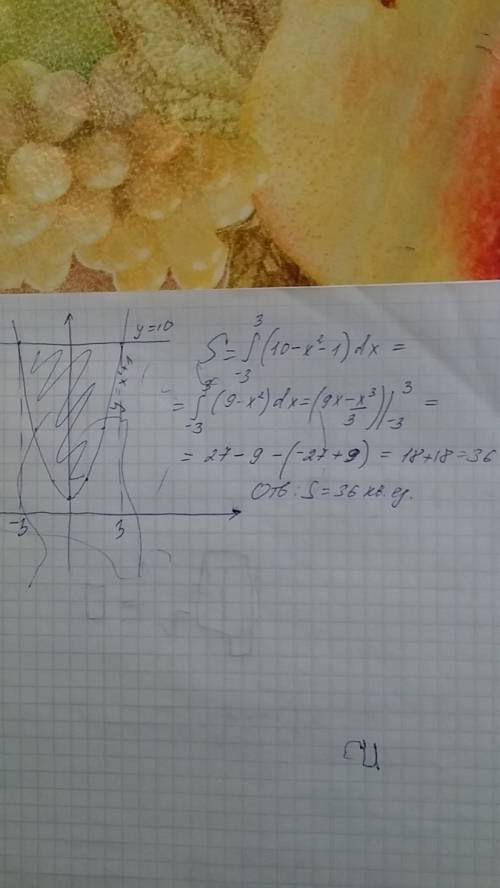 y=10
y=x²+1
S=∫₋₃³(10-x²-1)dx=
=∫₋₃³(9-x²)dx=(9x-x³/3)|₋₃³=
=27-9-(-27+9)=18+18=36
Отв: S=36 кв. ед.
-3 3